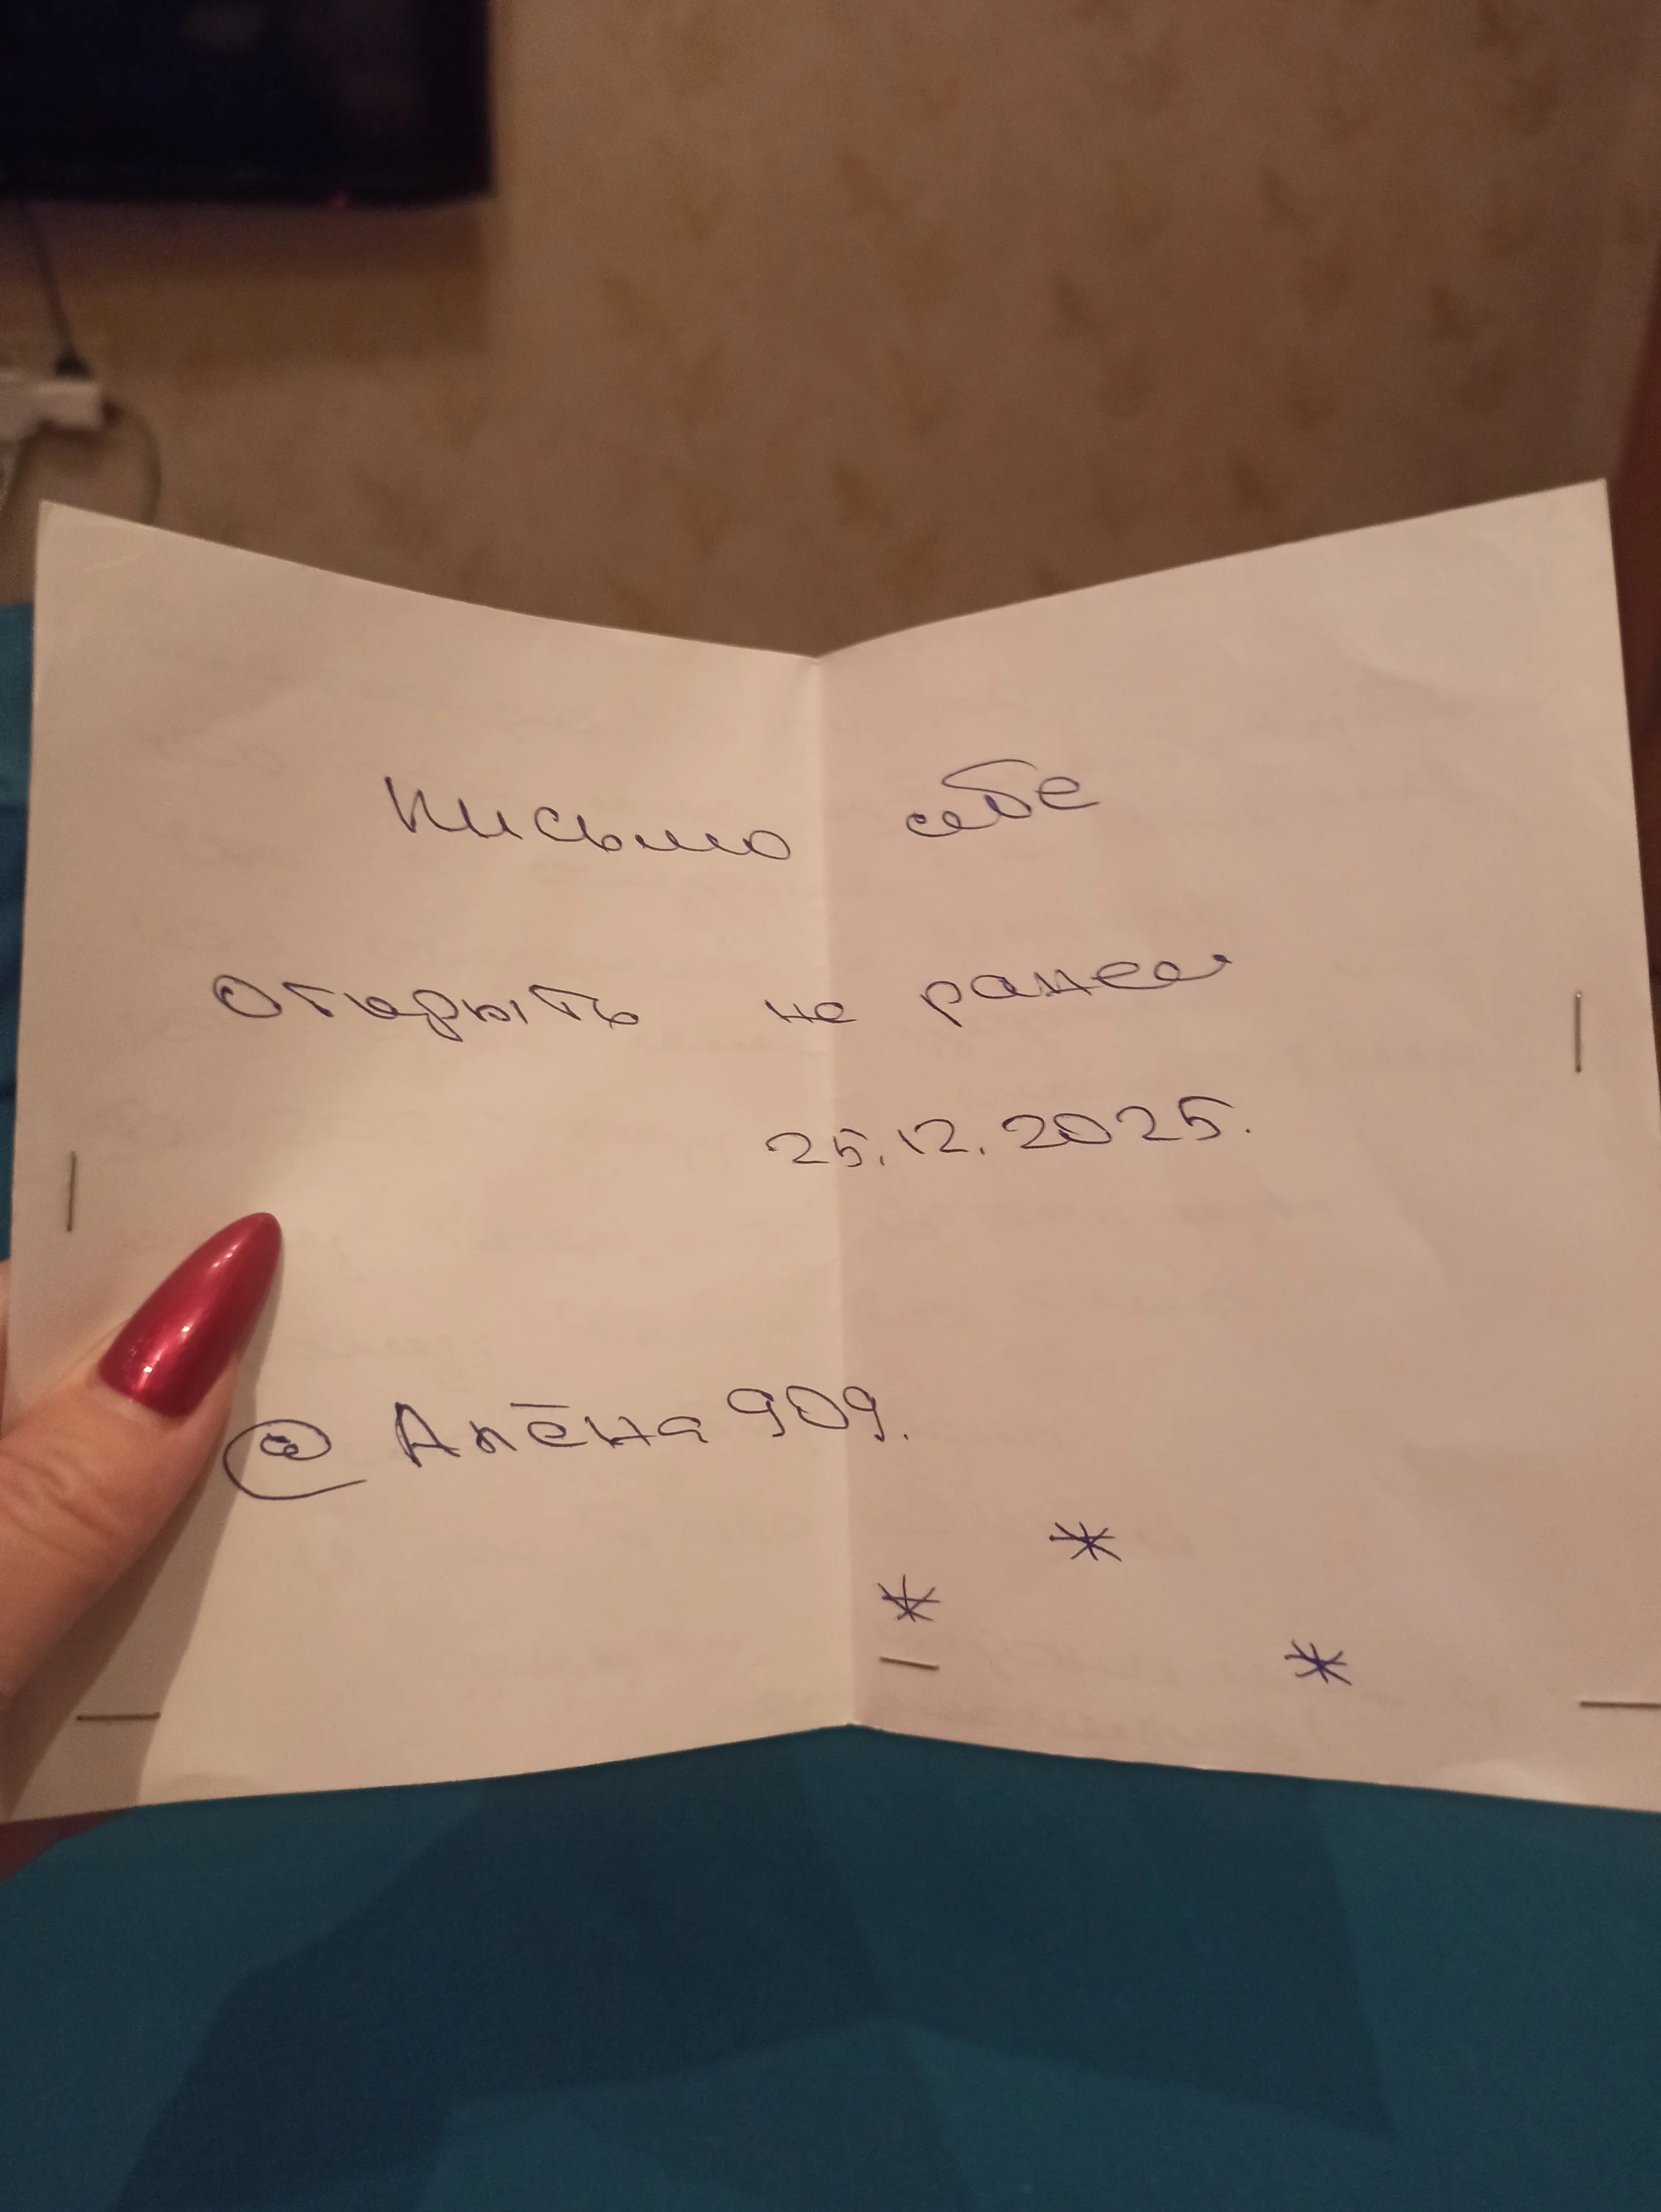 Письмо себе
Открыть не ранее
25.12.2025.
@ Алёна 909.
* 
*
*